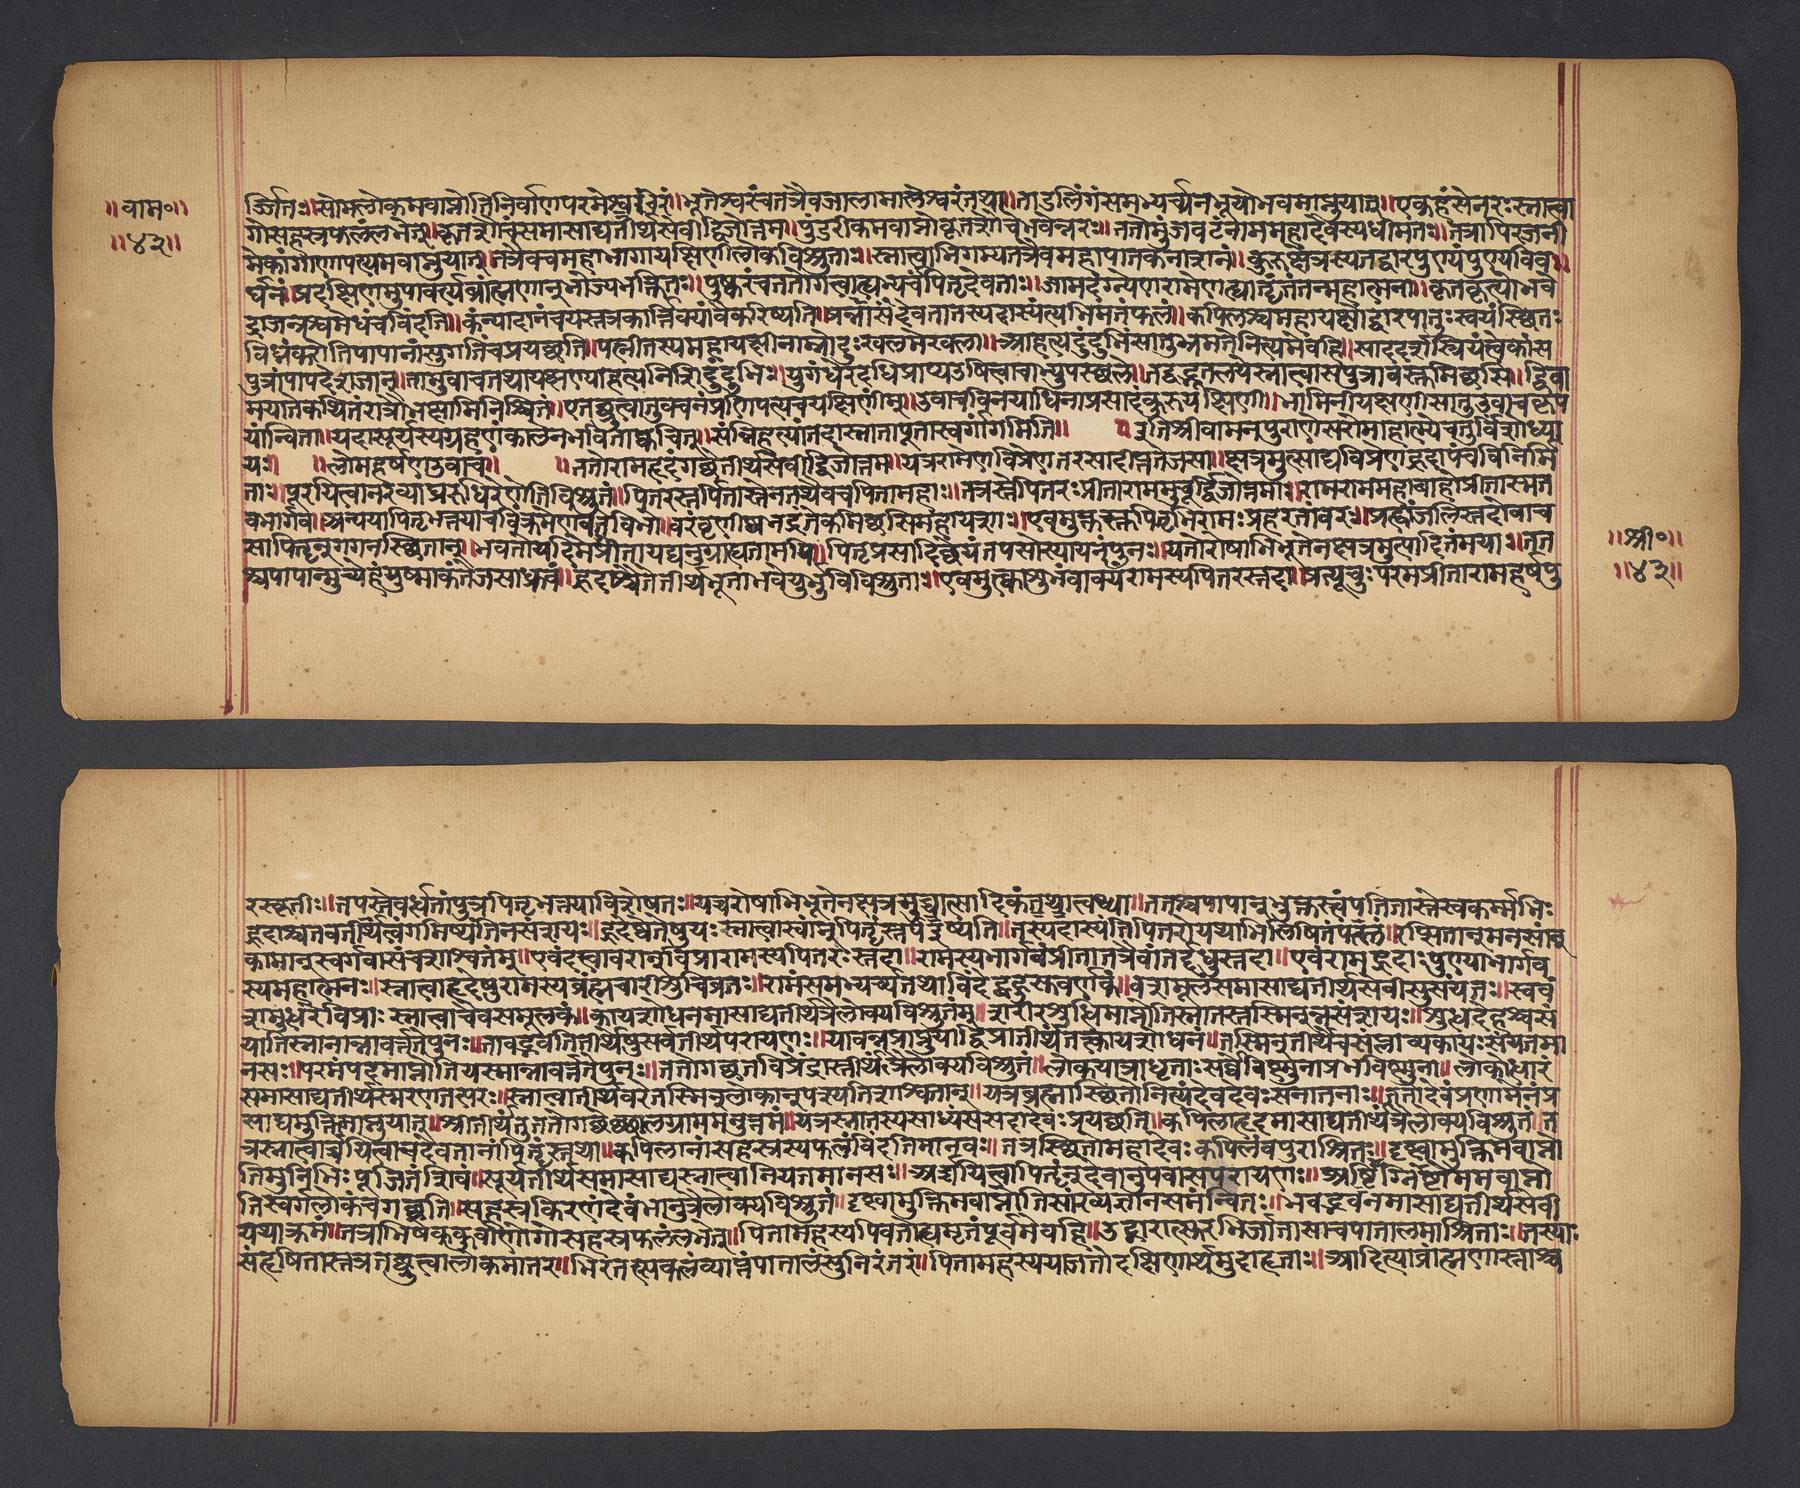 ॥वाम०॥
॥४३॥
र्ज्जितः॥सोमलोकमवाप्नोतिनिर्वाणपरमेश्व॥भूतेश्वरंचतत्रैवज्वालामालेश्वरंतथा॥ताउलिंगंसमभ्यर्च्यनभूयोभवमाप्नुयात्॥एकहंसेनरःस्नात्वा
गोसहस्त्रफलंलभेत्॥कृतशौचंसमासाद्यतीर्थसेवीद्विजोत्तम॥पुंडरीकमवाप्नोतिकृतशौचोभवेन्नरः॥ततोमुंजवटंनाममहादेवस्यधीमतः॥तत्रापिरजनी
मेकांगाणपत्यमवाप्नुयात्॥तत्रैवचमहाभागायक्षिणीलोकविश्रुता॥स्नात्वाभिगम्यतत्रैवमहापातकनाशनं॥कुरुक्षेत्रस्यतद्द्वारंपुण्यंपुण्यविव॥
र्धनं॥प्रदक्षिणमुपावर्त्त्यब्राह्मणान्भोज्यभक्तितः॥पुष्करंचततोगत्वाह्यभ्यर्च्यपितृदेवताः॥जामदग्न्येणरामेणह्याहृतंतन्महात्मना॥कृतकृत्योभवे
द्राजन्नश्वमेधंचविंदति॥कन्यादानंचयस्तत्रकार्त्तिक्यांवैकरिष्यति॥प्रसन्नादेवतातस्यदास्यंत्यभिमतंफलं॥कपिलश्चमहायक्षोद्वारपालःस्वयंस्थितः
विघ्नंकरोतिपापानांसुगतिंचप्रयच्छति॥पत्नीतस्यमहायक्षीनाम्नोदुःखलमेखला॥आहत्यदुंदुभिंसातुभ्रमतेनित्यमेवहि॥साददर्शस्त्रियंचैकांस
पुत्रांपापदेशजान्॥तामुवाचतथायक्षीआहत्यनिशिदुंदुभिः॥युगंधरेदधिप्राप्यउषित्वाचाच्युतस्थले॥तद्वद्भूतलयेस्नात्वासपुत्रावस्तुमिच्छसि॥दिवा
मयातेकथितंरात्रौभक्षामिनिश्चितं॥एतच्छ्रुत्वातुवचनंप्रणिपत्यचयक्षिणीम्॥उवाचविनयाधीनाप्रसादंकुरुयक्षिणी॥भामिनीयक्षिणीसातुउवाचकृप
यान्विता॥यदासूर्यस्यग्रहणंकालेनभविताक्वचित्॥सन्निहत्यांतदास्नातापूतास्वर्गंगमिष्यति॥ इतिश्रीवामनपुराणेसरोमाहात्म्येचतुर्विंशोध्या
यः॥ ॥लोमहर्षणउवाच॥ ॥ततोरामह्रदंगच्छेत्तीर्थसेवीद्विजोत्तम॥यत्ररामेणविप्रेणतरसादीप्ततेजसा॥क्षत्रमुत्साद्यविप्रेणह्रदाःपंचविनिर्मि
ताः॥पूरयित्वानरव्याघ्ररुधिरेणेतिविश्रुतं॥पितरस्तर्पितास्तेनतथैवचपितामहाः॥ततस्तेपितरःप्रीताराममूचुर्द्विजोत्तमाः॥रामराममहाबाहोप्रीताःस्मत
वभार्गव॥अनयापितृभक्त्याचविक्रमेणचतेविभो॥वरंवृणीष्वभद्रंतेकिमिच्छसिमहायशः॥एवमुक्तस्तुपितृभीरामःप्रहरतांवरः॥प्रह्वोंजलिस्तदोवाच
सपितृन्गगनस्थितान्॥भवंतोयदिमेप्रीतायद्यनुग्राह्यतामपि॥पितृप्रसादादिच्छेयंतपसोप्यायनंपुनः॥यतोरोषाभिभूतेनक्षत्रमुत्पादितंमया॥तत
श्चपापान्मुच्येहंयुष्माकंतेजसाध्रुवं॥ह्रदाश्चैतेतीर्थभूताभवेयुर्भुविविश्रुताः॥एवमुक्त्वाशुभंवाक्यंरामस्यपितरस्तदा॥प्रत्यूचुःपरमप्रीतारामंहर्षपु
॥श्री०॥
॥४३॥
रस्कृताः॥तपस्तेवर्धतांपुत्रपितृभक्त्याविशेषतः॥यच्चरोषाभिभूतेनक्षत्रमुत्सादितंत्वया॥ततश्चपापान्मुक्तस्त्वंपतितास्तेस्वकर्मभिः
ह्रदाश्चतवतीर्थत्वंगमिष्यंतिनसंशयः॥ह्रदेष्वेतेषुयःस्नात्वास्वान्पितृंस्तर्पयिष्यति॥तस्यदास्यंतिपितरोयथाभिलषितंफलं॥ईप्सितान्मनसान्
कामान्स्वर्गवासंचशाश्वतम्॥एवंदत्वावरान्विप्रारामस्यपितरःस्तदा॥रामस्यभार्गवंप्रीतास्तत्रैवांतर्दधुस्तदा॥एवंरामह्रदाःपुण्याभार्गव
स्यमहात्मनः॥स्नात्वाह्रदेषुरामस्यब्रह्मचारीशुचिव्रतः॥रामंसमभ्यर्च्यतथाविंदेद्बहुसुवर्णकं॥वंशमूलंसमासाद्यतीर्थसेवीसुसंयतः॥स्ववं
शमुद्धरेद्विप्राःस्नात्वाचैवंसमूलकं॥कायशोधनमासाद्यतीर्थंत्रैलोक्यविश्रुतम्॥शरीरशुद्धिमाप्नोतिस्नातस्तस्मिन्नसंशयः॥शुद्धदेहश्चसं
यातिस्नानान्नावर्त्ततेपुनः॥तावद्भ्रमंतितीर्थेषुसर्वतीर्थपरायणाः॥यावन्नप्राप्नुयाद्विप्रातीर्थंतत्कायशोधनं॥तस्मिंस्तुतीर्थेचसंप्लाव्यकायंसंयतमा
नसः॥परमंपदमाप्नोतियस्मान्नावर्त्ततेपुनः॥ततोगच्छेतविप्रेंद्रास्तीर्थंत्रैलोक्यविश्रुतं॥लोकयात्राधृताःसर्वेविष्णुनाप्रभविष्णुना॥लोकोद्धारं
समासाद्यतीर्थस्मरणतत्परः॥स्नात्वातीर्थवरेतस्मिन्लोकान्पश्यतिशाश्वतान्॥यत्रब्रह्मास्थितोनित्यंदेवदेवःसनातनः॥ततोदेवंप्रणामेनप्र
साद्यमुक्तिमाप्नुयात्॥श्रीतीर्थंतुततोगच्छेच्छालग्राममनुत्तमं॥यत्रस्नातस्यसान्निध्यंसदादेवःप्रयच्छति॥कपिलाह्रदमासाद्यतीर्थंत्रैलोक्यविश्रुतं॥त
त्रस्नात्वार्चयित्वाचदेवतानांपितृंस्तथा॥कपिलानांसहस्त्रस्यफलंविंदतिमानवः॥तत्रस्थितोमहादेवःकपिलंवपुराश्रितः॥दृष्ट्वामुक्तिमवाप्नो
तिमुनिभिःपूजितंशिवं॥सूर्यतीर्थंसमासाद्यस्नात्वानियतमानसः॥अर्चयित्वापितृंन्देवानुपवासपरायणः॥अग्निष्टोममवाप्नो
तिस्वर्गलोकंचगच्छति॥सहस्त्रकिरणंदेवंभानुंत्रैलोक्यविश्रुतं॥दृष्ट्वामुक्तिमवाप्नोतिसांख्यज्ञानसमन्वितः॥भवद्भवनमासाद्यतीर्थसेवी
यथाक्रमं॥तत्राभिषेकंकुर्वाणोगोसहस्त्रफलंलभेत्॥पितामहस्यपिबतोह्यमृतंपूर्वमेवहि॥उद्गारात्सुरभिर्जातासाचपातालमाश्रिताः॥तस्याः
संहृषितास्तत्रतच्छ्रुत्वालोकमातर॥भिरततस्यकलंव्याप्तंपातालंसुनिरंतरं॥पितामहस्ययजतोदक्षिणार्थमुदाहृताः॥आदित्याब्राह्मणास्ताश्च